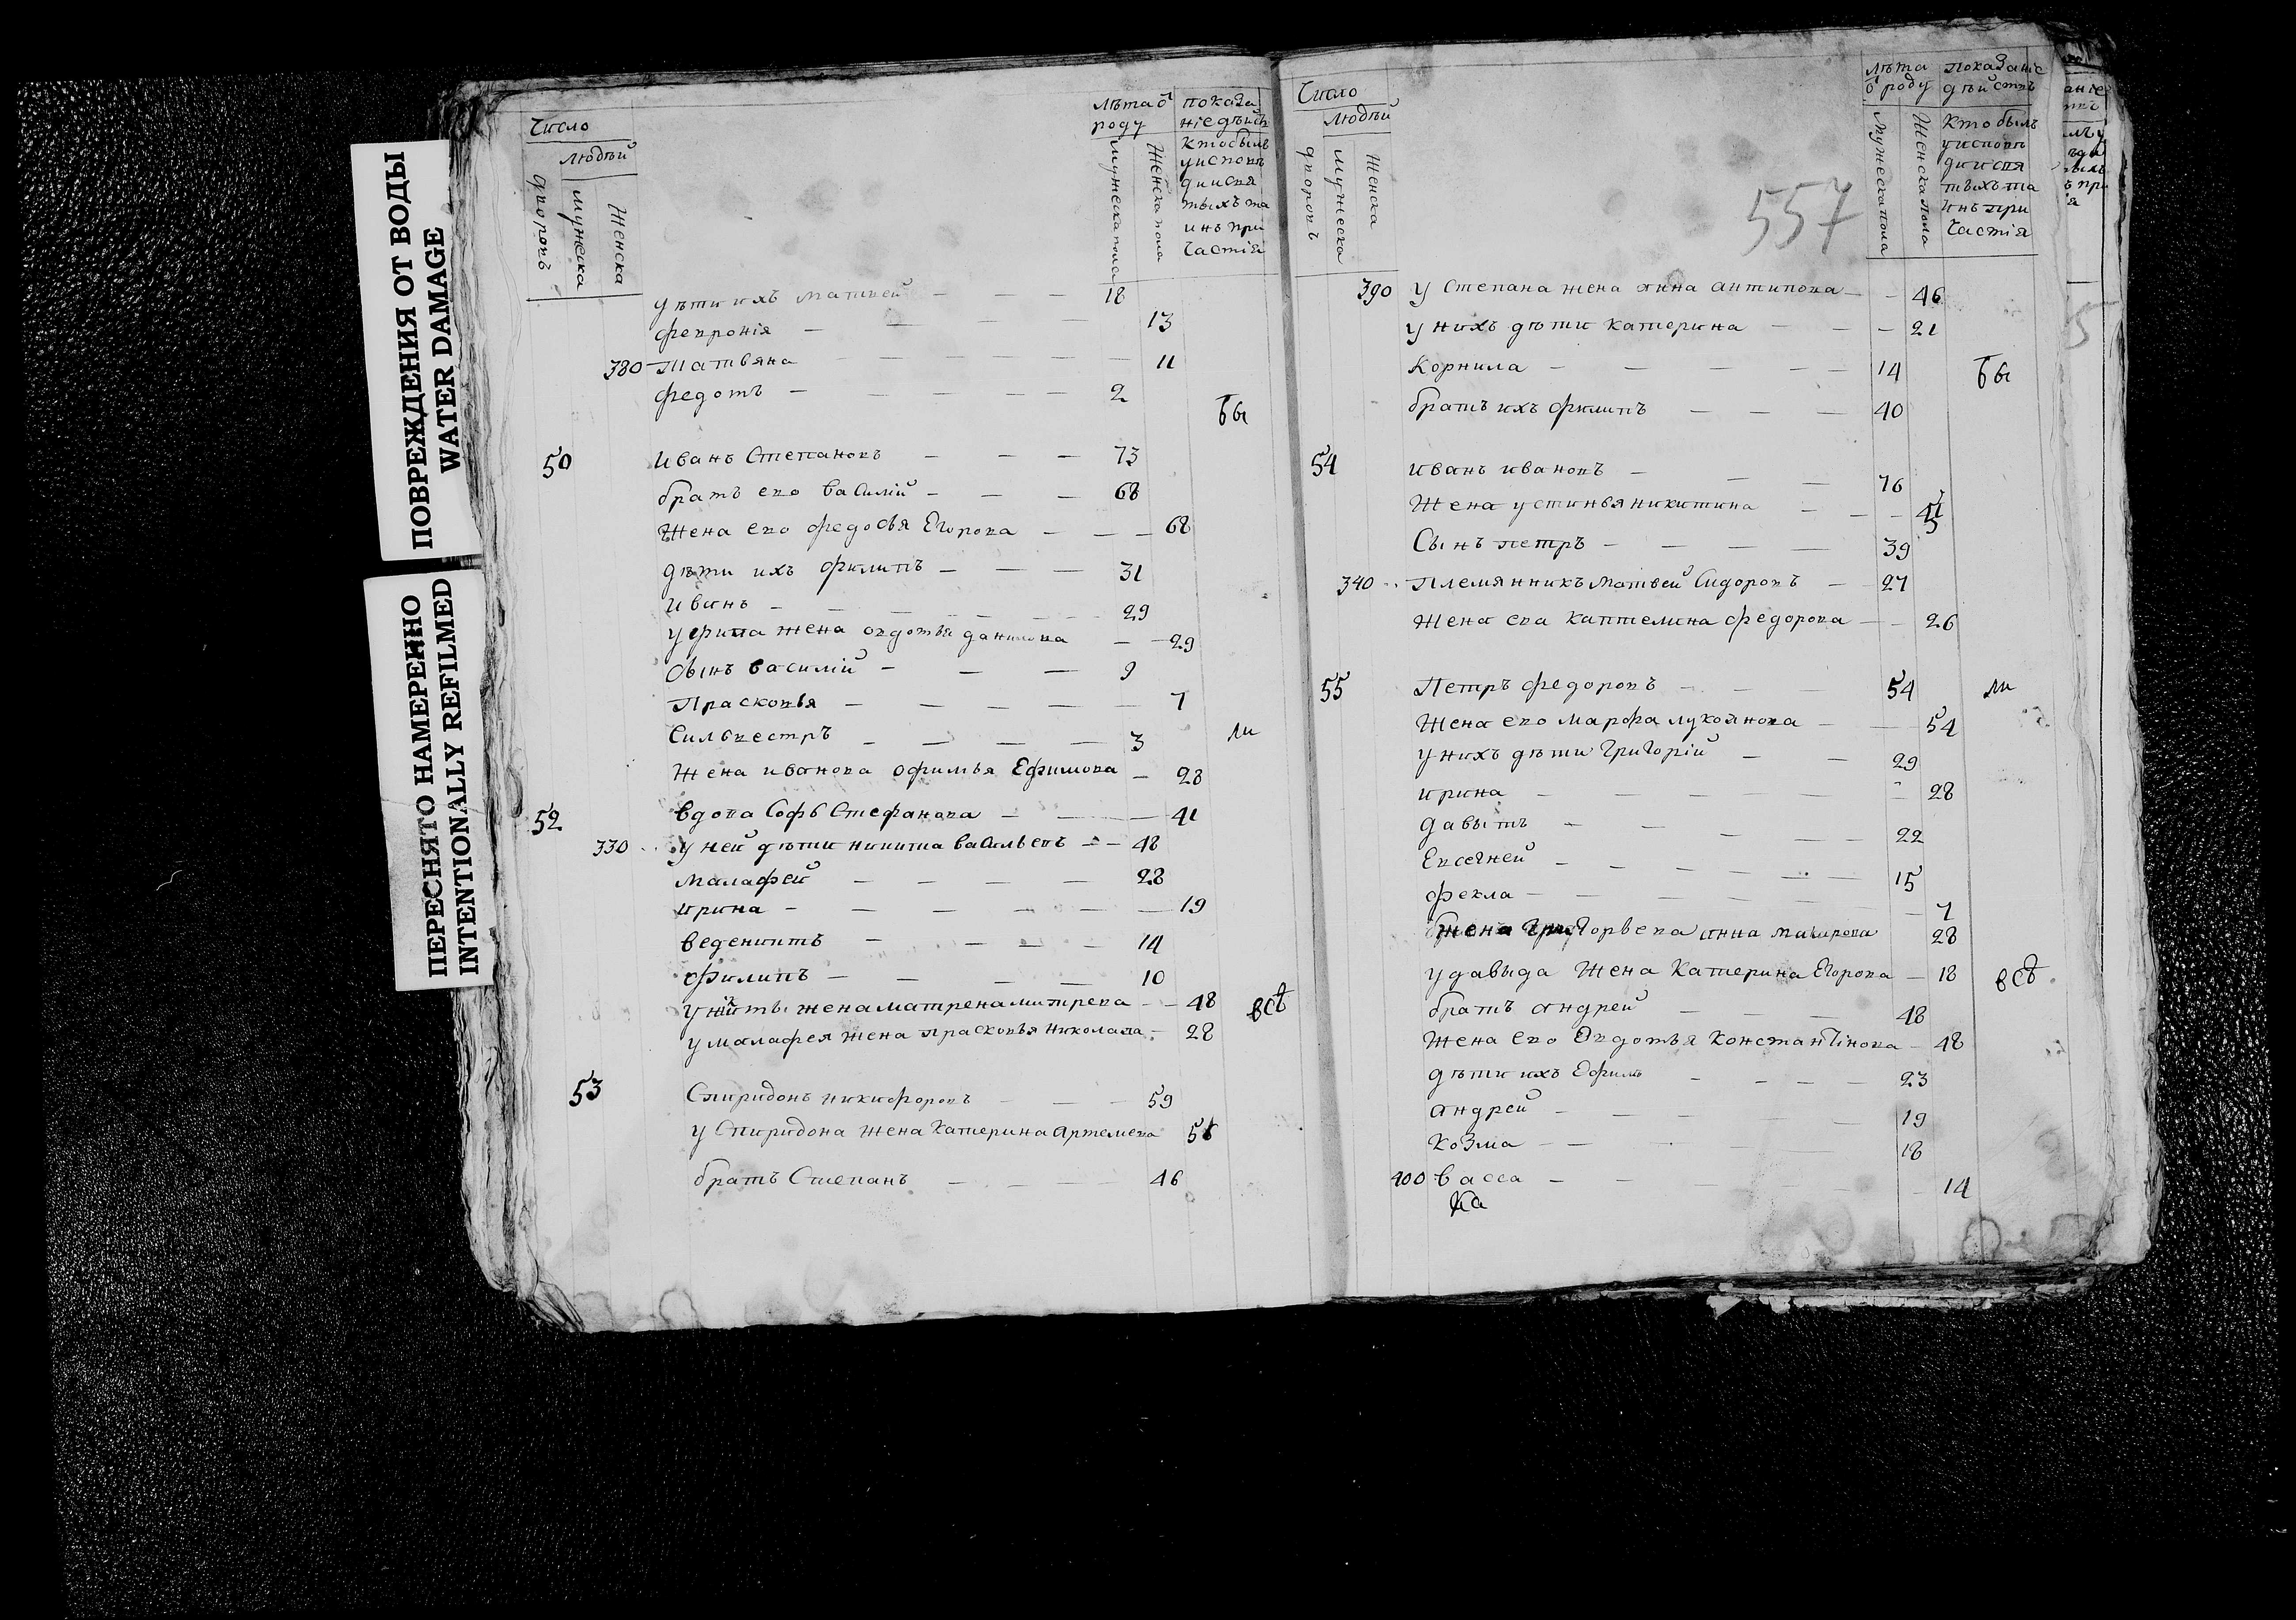 ПОВРЕЖДЕНИЯ ОТ ВОДЫ
WATER DAMAGE
ПЕРЕСНЯТО НАМЕРЕННО
INTENTIONALLY REFILMED
Число
людѣй
дворовъ
мужеска
Женска
лѣта ѿ
роду
мужеска пола
Женска пола
показа
ніе дѣйств
Кто былъ
уиспове
ди исвя
тыхъ та
инъ при
частія
дѣти ихъ матвей — — — 18
февронія — — — — 13
380 Татьяна — — — — — 11
федотъ — — — — — 2
бы
50 Иванъ Степановъ — — — 73
братъ ево василій — — — 68
Жена ево федосья Егорова — — — 68
дѣти ихъ филипъ — — — 31
Иванъ — — — — — 29
у фипа жена овдотья данилова — — 29
сынъ василій — — — 9
Прасковья — — — — — 7
Сильвестръ — — — — 3
ли
Жена иванова офимья Ефимова — 28
52 вдова Софь Стефанова — — — 41
330 у ней дѣти никита васильевъ — — 48
малафей — — — — 28
ирина — — — — — — 19
веденитъ — — — — 14
филипъ — — — — 10
у никты жена матрена митрева — — 48
всѣ
у малафея жена прасковья николаева — 28
53 Спиридонъ никифоровъ — — — 59
у Спиридона жена Катерина Артемева 56
братъ Степанъ — — — — 46
Число
людѣй
дворовъ
мужеска
Женска
557
лѣта
ѿ роду
мужеска пола
Женска пола
показаніе
дѣйствъ
Кто былъ
уисповѣ
ди исвя
тыхъ та
инъ при
частія
390 у Степана жена анна антипова — — 46
у нихъ дѣти катерина — — — 21
Корнила — — — — — — 14
бы
братъ ихъ филипъ — — — 40
54 иванъ ивановъ — — — 76
Жена устинья никитина — — —
Сынъ петръ — — — — 39
340 Племянникъ матвей Сидоровъ — 27
Жена ева каптелина федорова — — 26
55 Петръ федоровъ — — — 54
ли
Жена ево марфа лукоянова — — 54
у нихъ дѣти Григорій — — 29
ирина — — — — — — 28
давытъ — — — — — 22
Евсегней — — — — — — 15
фекла — — — — — — 7
жена Григорьева анна макарева 28
у давыда Жена Катерина Егорова — 18
всѣ
братъ андрей — — — 48
Жена ево Овдотья Константінова — 48
дѣти ихъ Ефимъ — — — — 23
андрей — — — — 19
Козма — — — — 18
400 васса — — — — — 14
Ка